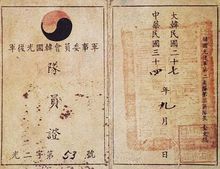 軍事委員會韓國光復軍
隊員證
光二字第53號
大韓民國二十七
中華民國三十四
年九月 日